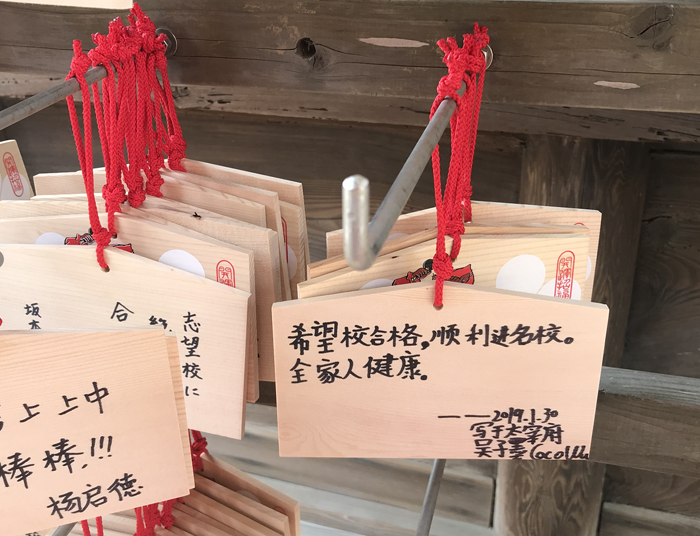 希望校合格，顺利进名校。
全家人健康。
——2019.1.30
写于太宰府
吴子墨
志望校に
合
坂本
上上中
棒棒!!!
杨启德